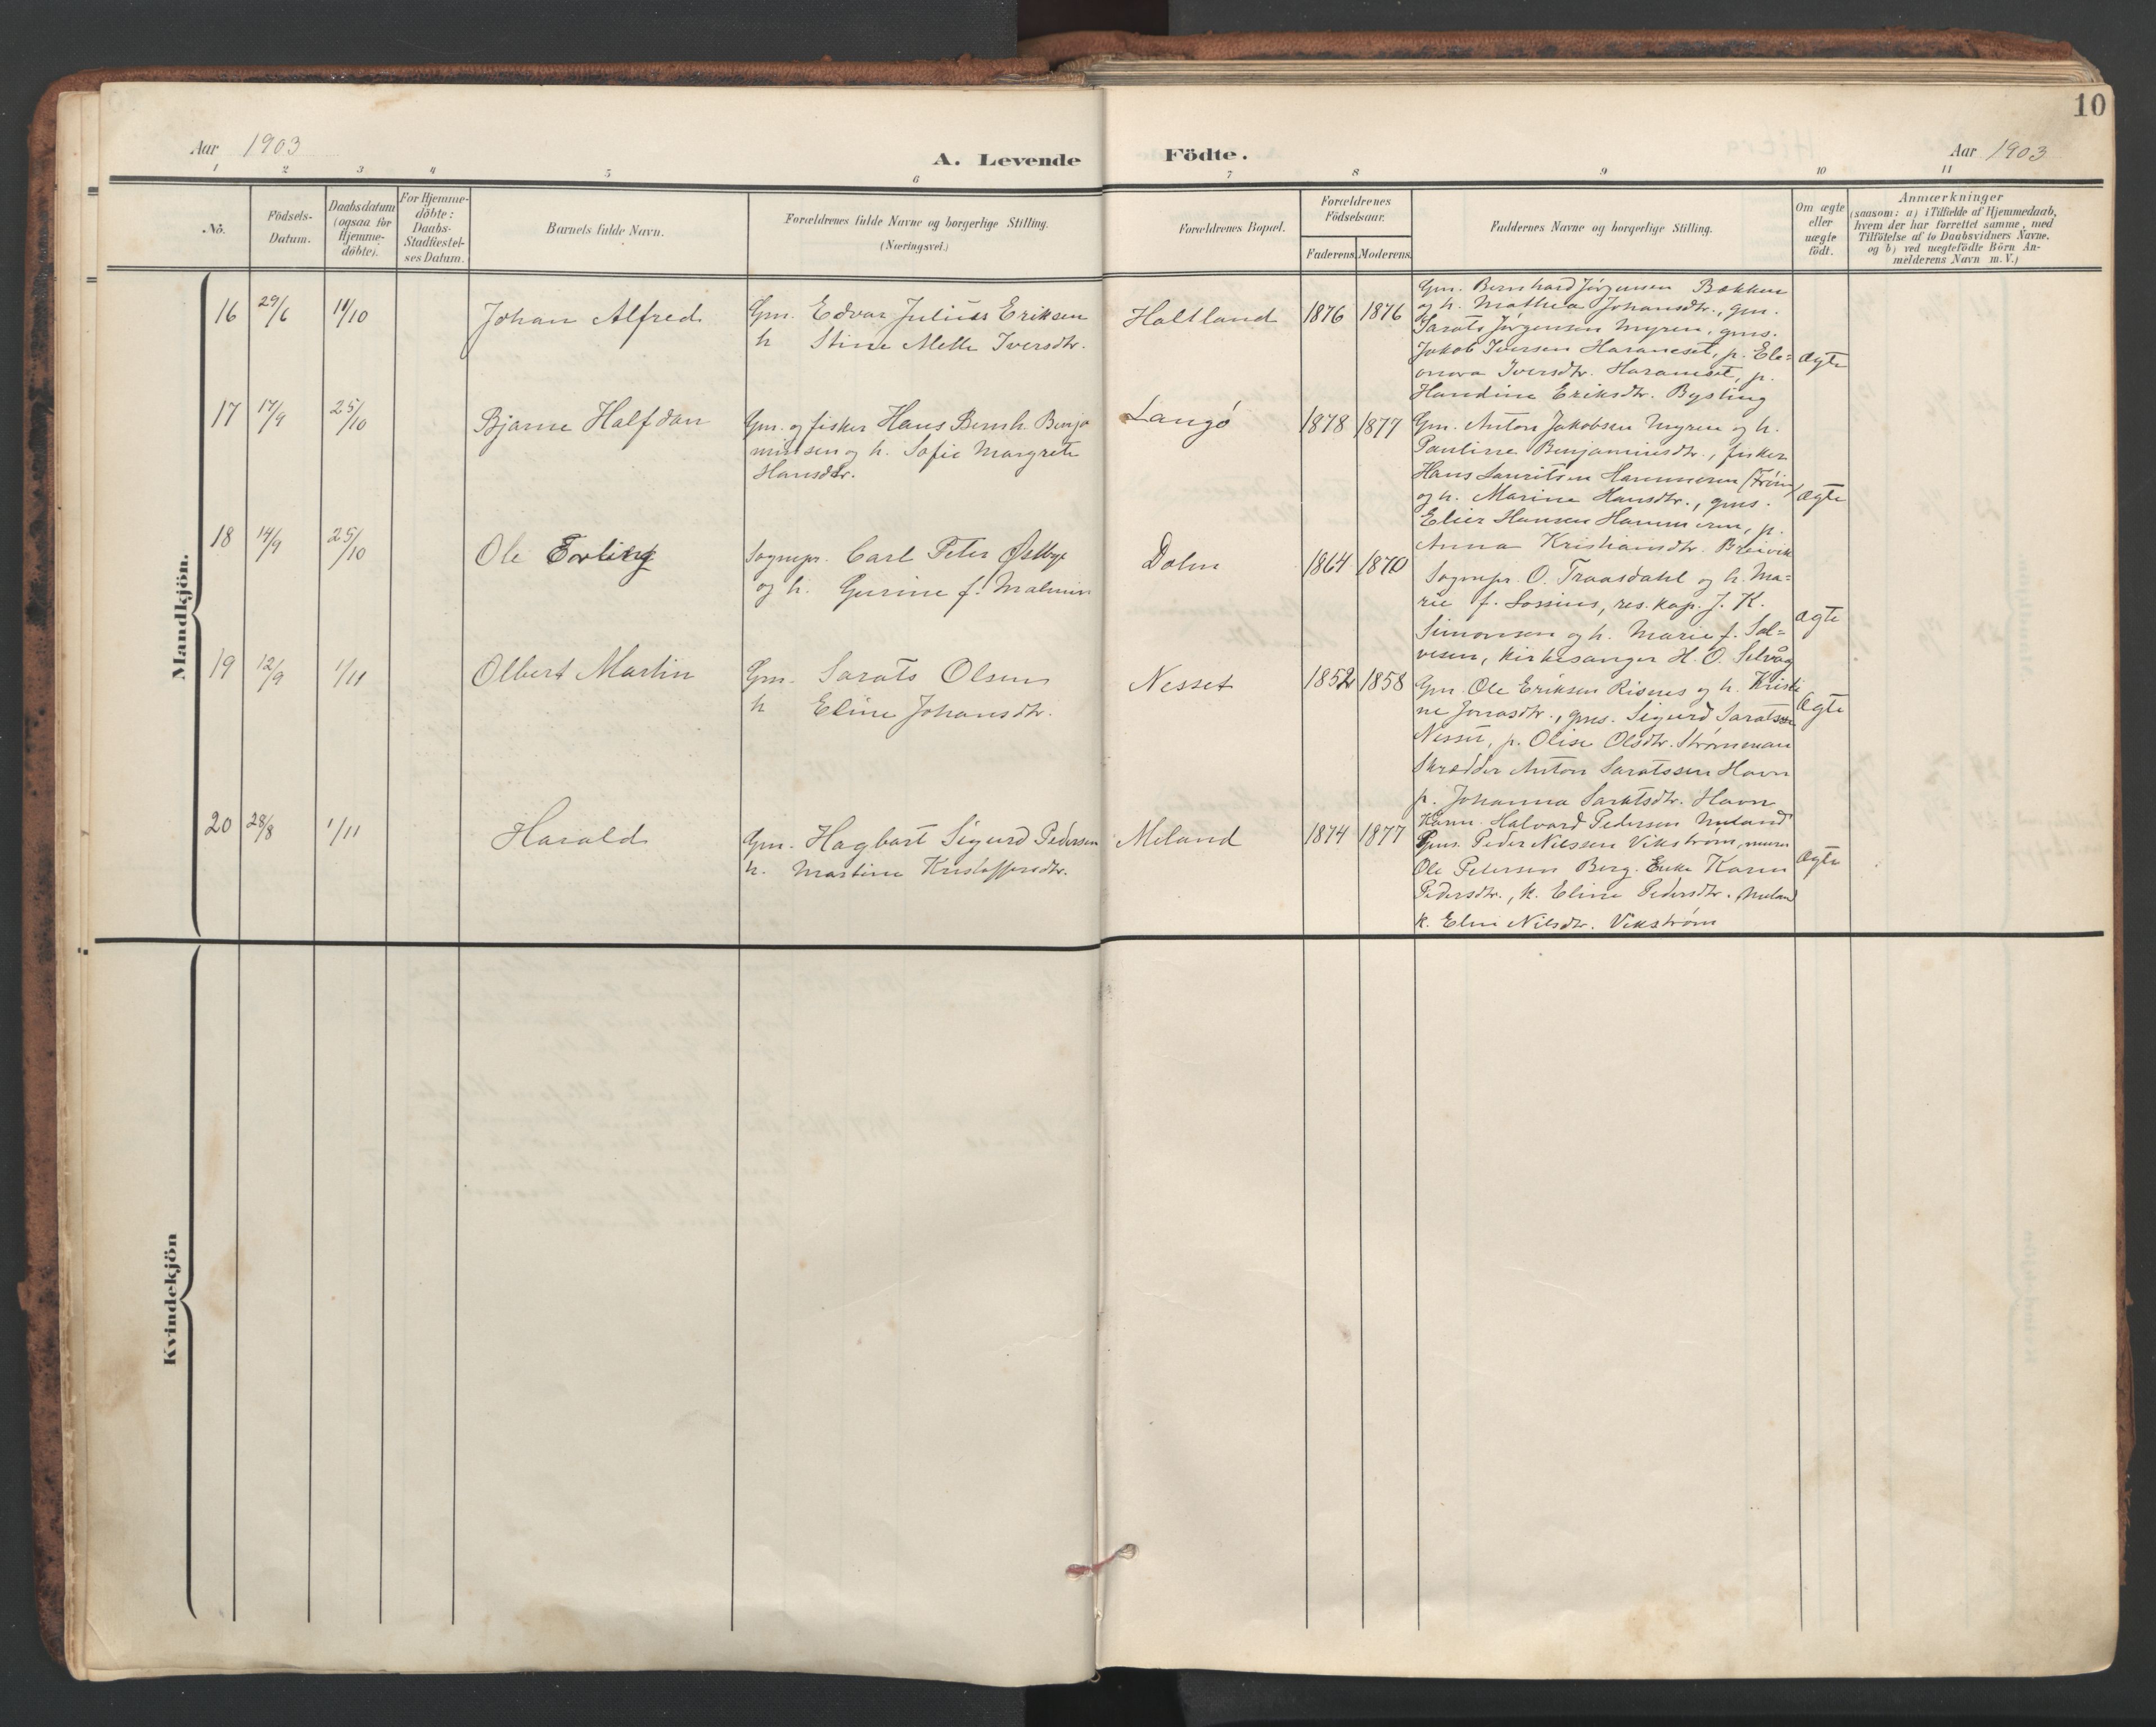 10
Aar 1903
A. Levende Födte.
Aar 1903
1 2 3 4 5 6 7 8 9 10 11
No.
Födsels-
Datum.
Daabsdatum
(ogsaa for
Hjemme-
döbte).
For Hjemme-
döbte:
Daabs-
Stadfæstel-
ses Datum.
Barnets fulde Navn.
Forældrenes fulde Navne og borgerlige Stilling.
(Næringsvei.)
Forældrenes Bopæl.
Forældrenes
Födselsaar.
Faderens. Moderens.
Faddernes Navne og borgerlige Stilling.
Om ægte
eller
uægte
födt.
Anmærkninger
(saasom: a) i Tilfælde af Hjemmedaab,
hvem der har forrettet samme, med
Tilföielse af to Daabsvidners Navne.
og b) ved uægtefödte Börn An-
melderens Navn m. V.)
Mandkjön.
16 29/6 11/10 Johan Alfred
Gm. Edvar Julius Eriksen
h Stine Mette Iversdtr.
Haltland 1876 1876
Gm. Bernhard Jørgensen Bakken
og h. Mathea Johansdtr., gm.
Sarats Jørgensen Myren, gms.
Jakob Iversen Haraneset, p. Ele=
onora Iversdtr. Haraneset, p.
Handine Eriksdtr. Bysting
Ægte
17 17/9 25/10 Bjarne Halfdan
Gm. og fisker Hans Bernh. Benja
minsen og h. Sofie Margrete
Hansdtr.
Langø 1878 1877
Gm. Anton Jakobsen Myren og h.
Pauline Benjaminsdtr., fisker
Hans Lauritsen Hammeren (Frøien)
og h. Marine Hansdtr., gms.
Elier Hansen Hammeren, p.
Anna Kristiansdtr. Breivik
Ægte
18 14/9 25/10 Ole Erling
Sognepr. Carl Peter Østbye
og h. Gurine f. Malmin
Dolm 1864 1870
Sognepr. O. Traasdahl og h. Ma=
rie f. Sossius, res. kap. J. K.
Simonsen og h. Marie f. Sal=
vesen, kirkesanger H. O. Selvåg
Ægte
19 12/9 1/11 Olbert Martin
Gm. Sarats Olsen
h Eline Johansdtr.
Nesset 1852 1858
Gm. Ole Eriksen Risnes og h. Kristi
ne Jonasdtr., gms. Sigurd Saratssen
Nesset, p. Olise Olsdtr. Strømman
Skrædder Anton Saratssen Havn
p. Johanna Saratsdtr. Havn
Ægte
20 28/8 1/11 Harald
Gm. Hagbart Sigurd Pedersen
h. Martine Kristoffersdtr.
Meland 1874 1877
Kaarm. Halvard Pedersen Meland
Gms. Peder Nilssen Vikstrøm, murer
Ole Petersen Berg. Enke Karen
Pedersdtr., k. Eline Pedersdtr. Meland
k. Elen Nilsdtr. Vikstrøm
Ægte
Kvindekjön